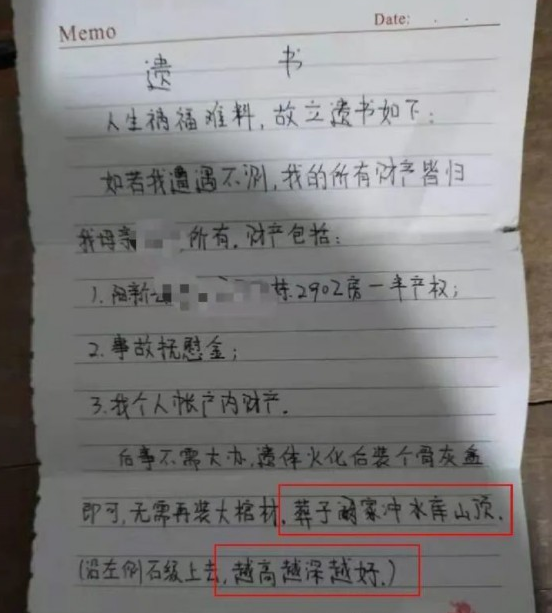 Memo
Date:
遗 书
人生祸福难料，故立遗书如下：
如若我遭遇不测，我的所有财产皆归
我母亲 所有，财产包括：
1. 阳新 栋2902房一半产权；
2. 事故抚慰金；
3. 我个人帐户内财产。
后事不需大办，遗体火化后装个骨灰盒
即可，无需再装大棺材。葬于 家冲水库山顶。
（沿左侧石级上去，越高越深越好。）